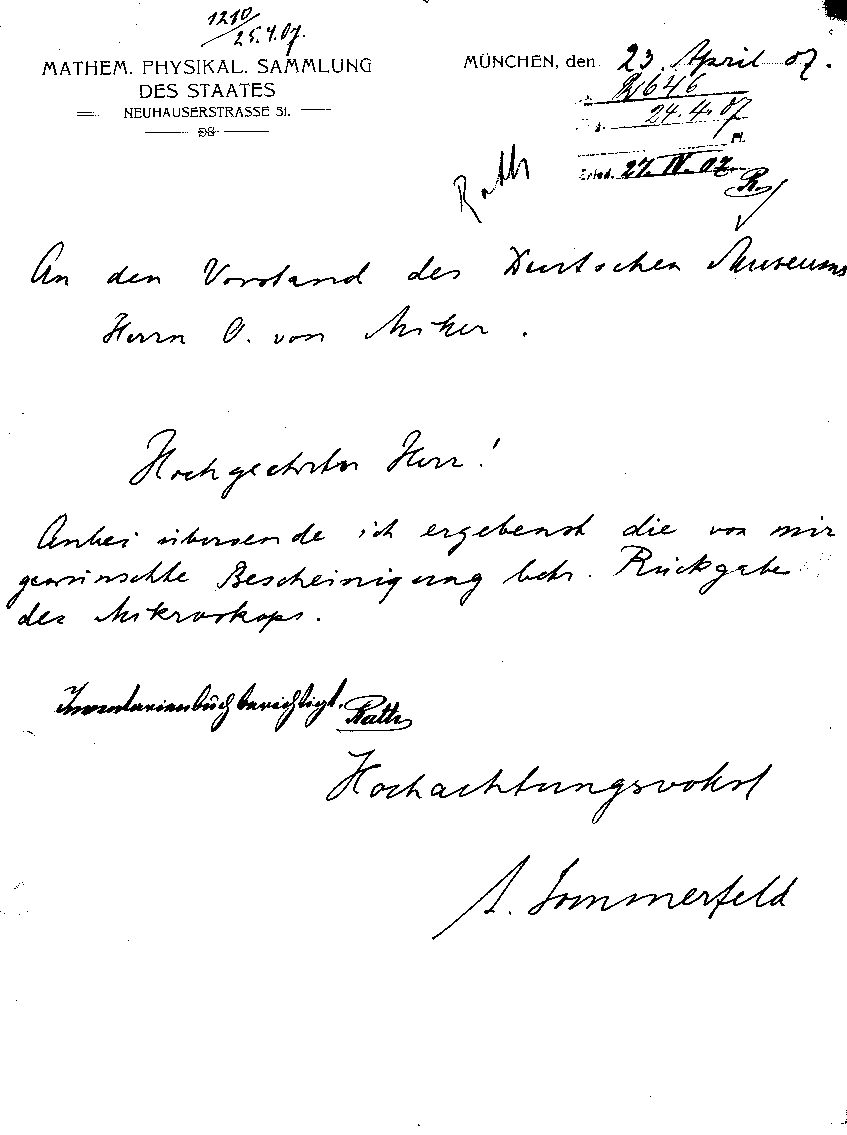 1210/25.4.07.
MATHEM. PHYSIKAL. SAMMLUNG
DES STAATES
NEUHAUSERSTRASSE 51.
MÜNCHEN, den 23. April 07.
1646
24.4.07
Erled. 27. IV. 07. R.
Rath
An den Vorstand des Deutschen Museums
Herrn O. von Miller.
Hochgeehrter Herr!
Anbei übersende ich ergebenst die von mir
gewünschte Bescheinigung betr. Rückgabe
des Mikroskops.
Inventarienbuch berichtigt. Rath
Hochachtungsvollst
A. Sommerfeld